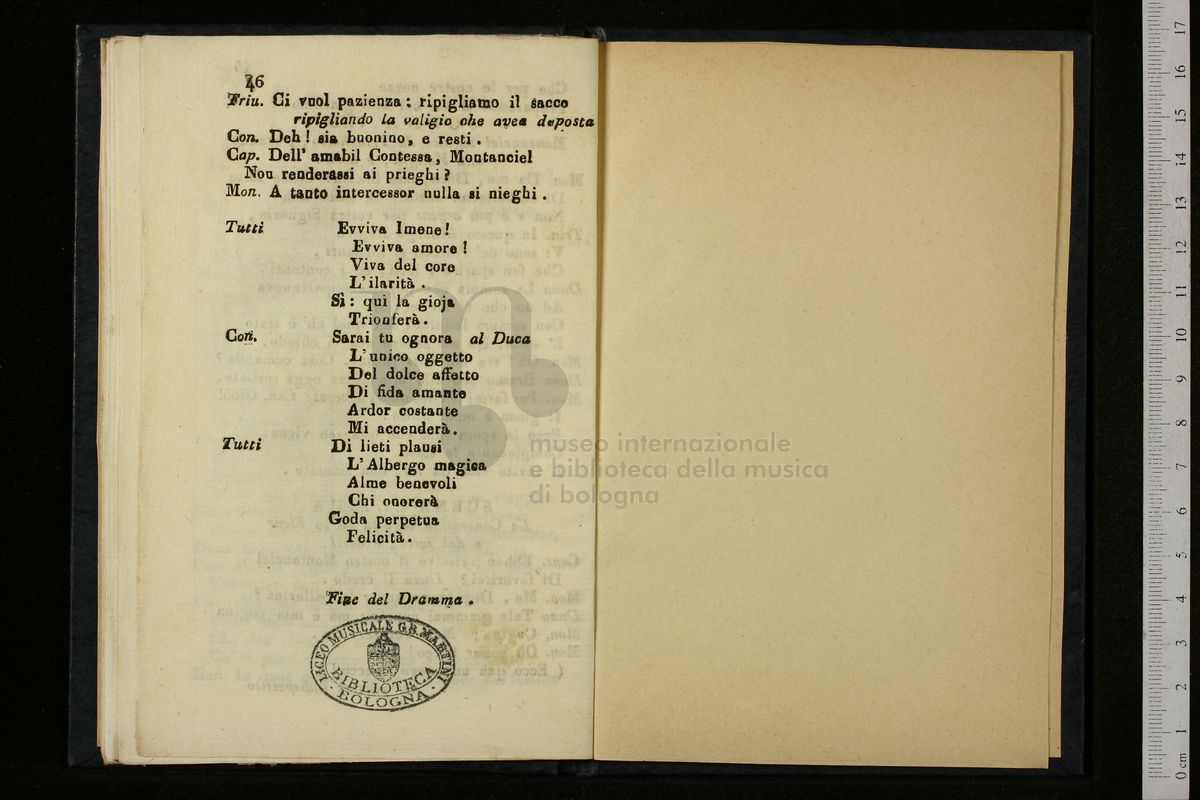 46
Triu. Ci vuol pazienza : ripigliamo il sacco
ripigliando la valigia che avea deposta
Con. Deh ! sia buonino, e resti .
Cap. Dell' amabil Contessa, Montanciel
Non renderassi ai prieghi ?
Mon. A tanto intercessor nulla si nieghi .
Tutti Evviva Imene !
Evviva amore !
Viva del core
L' ilarità .
Sì : qui la gioja
Trionferà .
Con. Sarai tu ognora al Duca
L' unico oggetto
Del dolce affetto
Di fida amante
Ardor costante
Mi accenderà .
Tutti Di lieti plausi
L' Albergo magica
Alme benevoli
Chi onorerà
Goda perpetua
Felicità .
Fine del Dramma .
LICEO MUSICALE G.B. MARTINI
BIBLIOTECA
· BOLOGNA ·
museo internazionale
e biblioteca della musica
di bologna
0 cm 1 2 3 4 5 6 7 8 9 10 11 12 13 14 15 16 17